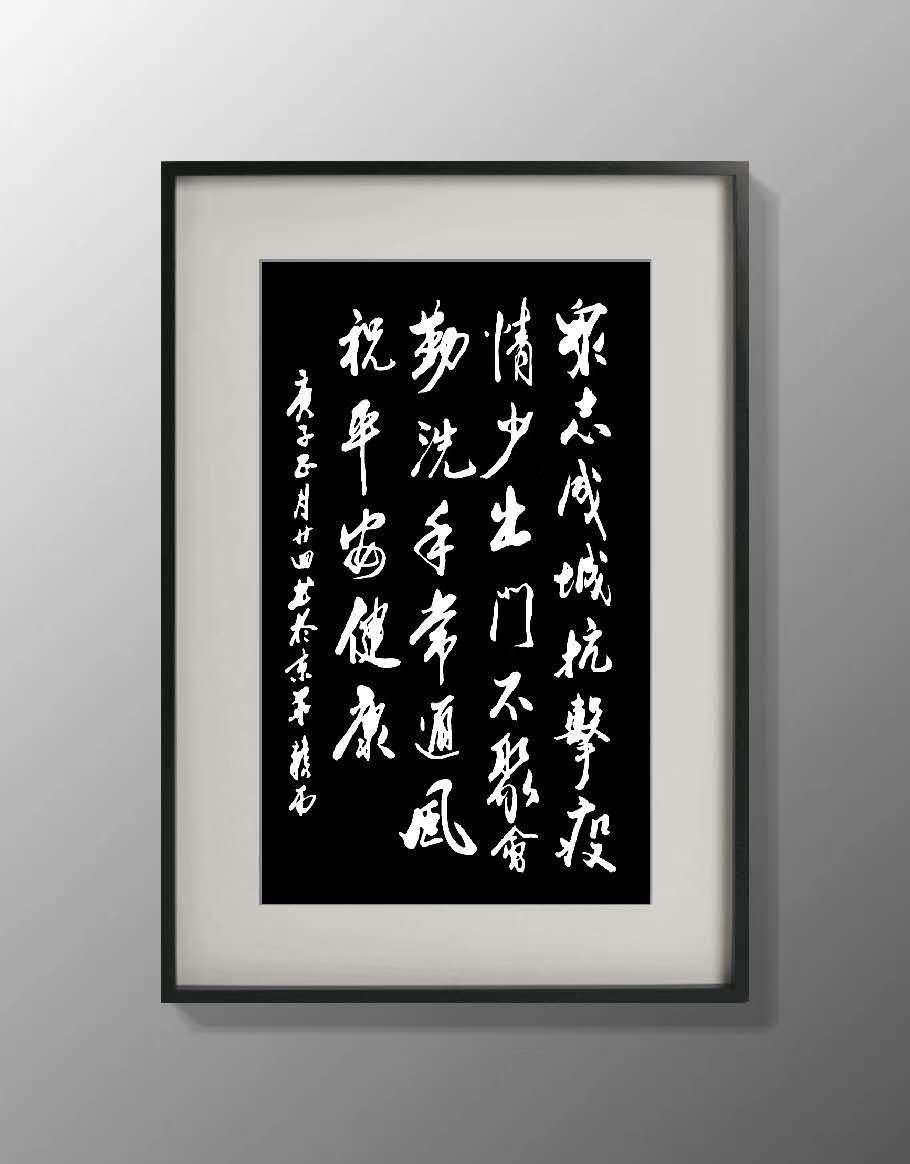 眾志成城抗擊疫
情少出門不聚會
勤洗手常通風
祝平安健康
庚子正月廿四書於京華 積雨